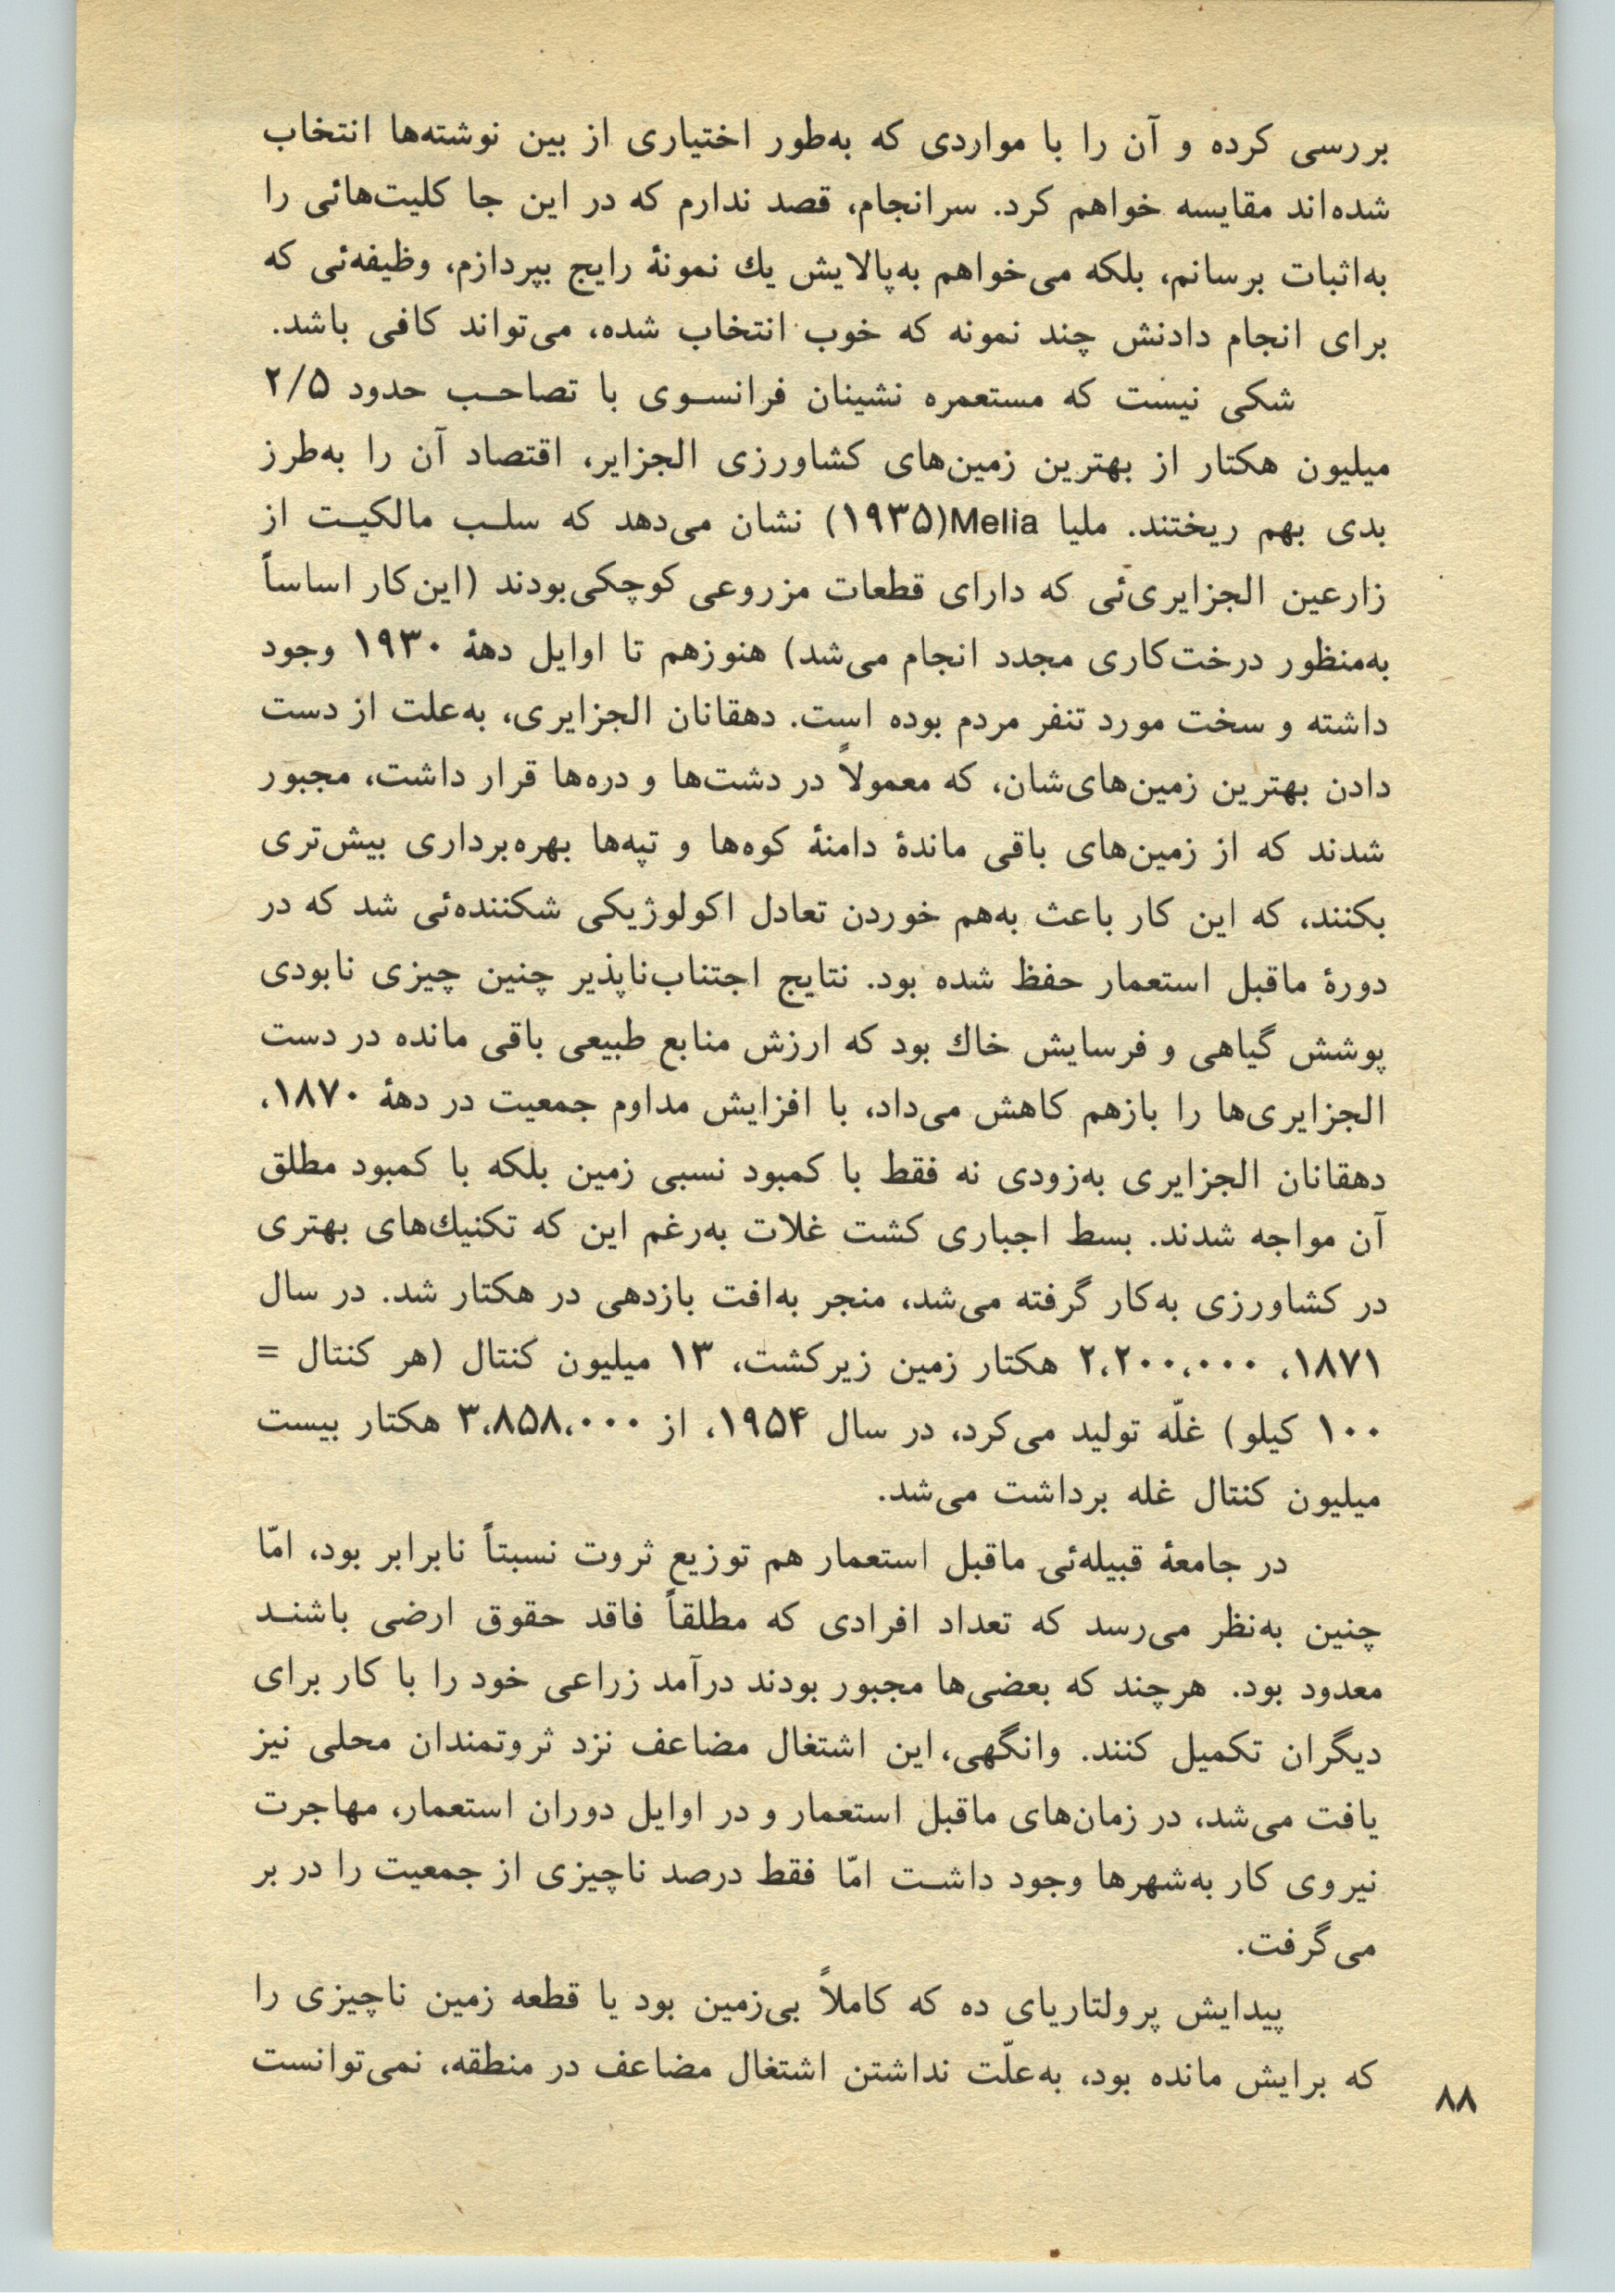 بررسی کرده و آن را با مواردی که به‌طور اختیاری از بین نوشته‌ها انتخاب
شده‌اند مقایسه خواهم کرد. سرانجام، قصد ندارم که در این جا کلیت‌هائی را
به‌اثبات برسانم، بلکه می‌خواهم به‌پالایش یك نمونهٔ رایج بپردازم، وظیفه‌ئی که
برای انجام دادنش چند نمونه که خوب انتخاب شده، می‌تواند کافی باشد.
شکی نیست که مستعمره نشینان فرانسـوی با تصاحـب حدود ۲/۵
میلیون هکتار از بهترین زمین‌های کشاورزی الجزایر، اقتصاد آن را به‌طرز
بدی بهم ریختند. ملیا Melia(۱۹۳۵) نشان می‌دهد که سلـب مالکیـت از
زارعین الجزایری‌ئی که دارای قطعات مزروعی کوچکی‌بودند (این‌کار اساساً
به‌منظور درخت‌کاری مجدد انجام می‌شد) هنوزهم تا اوایل دههٔ ۱۹۳۰ وجود
داشته و سخت مورد تنفر مردم بوده است. دهقانان الجزایری، به‌علت از دست
دادن بهترین زمین‌های‌شان، که معمولاً در دشت‌ها و دره‌ها قرار داشت، مجبور
شدند که از زمین‌های باقی ماندهٔ دامنهٔ کوه‌ها و تپه‌ها بهره‌برداری بیش‌تری
بکنند، که این کار باعث به‌هم خوردن تعادل اکولوژیکی شکننده‌ئی شد که در
دورهٔ ماقبل استعمار حفظ شده بود. نتایج اجتناب‌ناپذیر چنین چیزی نابودی
پوشش گیاهی و فرسایش خاك بود که ارزش منابع طبیعی باقی مانده در دست
الجزایری‌ها را بازهم کاهش می‌داد، با افزایش مداوم جمعیت در دههٔ ۱۸۷۰،
دهقانان الجزایری به‌زودی نه فقط با کمبود نسبی زمین بلکه با کمبود مطلق
آن مواجه شدند. بسط اجباری کشت غلات به‌رغم این که تکنیك‌های بهتری
در کشاورزی به‌کار گرفته می‌شد، منجر به‌افت بازدهی در هکتار شد. در سال
۱۸۷۱، ۲،۲۰۰،۰۰۰ هکتار زمین زیرکشت، ۱۳ میلیون کنتال (هر کنتال =
۱۰۰ کیلو) غلّه تولید می‌کرد، در سال ۱۹۵۴، از ۳،۸۵۸،۰۰۰ هکتار بیست
میلیون کنتال غله برداشت می‌شد.
در جامعهٔ قبیله‌ئی ماقبل استعمار هم توزیع ثروت نسبتاً نابرابر بود، امّا
چنین به‌نظر می‌رسد که تعداد افرادی که مطلقاً فاقد حقوق ارضی باشنـد
معدود بود. هرچند که بعضی‌ها مجبور بودند درآمد زراعی خود را با کار برای
دیگران تکمیل کنند. وانگهی، این اشتغال مضاعف نزد ثروتمندان محلی نیز
یافت می‌شد، در زمان‌های ماقبل استعمار و در اوایل دوران استعمار، مهاجرت
نیروی کار به‌شهرها وجود داشـت امّا فقط درصد ناچیزی از جمعیت را در بر
می‌گرفت.
پیدایش پرولتاریای ده که کاملاً بی‌زمین بود یا قطعه زمین ناچیزی را
که برایش مانده بود، به‌علّت نداشتن اشتغال مضاعف در منطقه، نمی‌توانست
۸۸